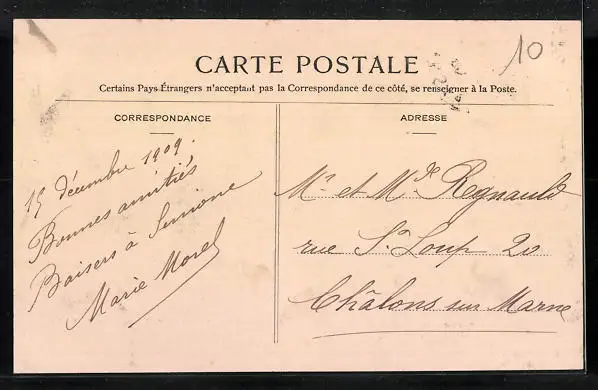 10
CARTE POSTALE
Certains Pays Étrangers n'acceptant pas la Correspondance de ce côté, se renseigner à la Poste.
CORRESPONDANCE
15 décembre 1909.
Bonnes amitiés
Baisers à Simone
Marie Morel
ADRESSE
Mr et Mde Regnauld
rue St Loup 20
Châlons sur Marne